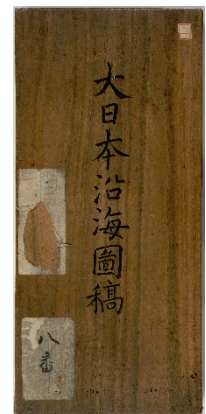 大日本沿海圖稿
八番